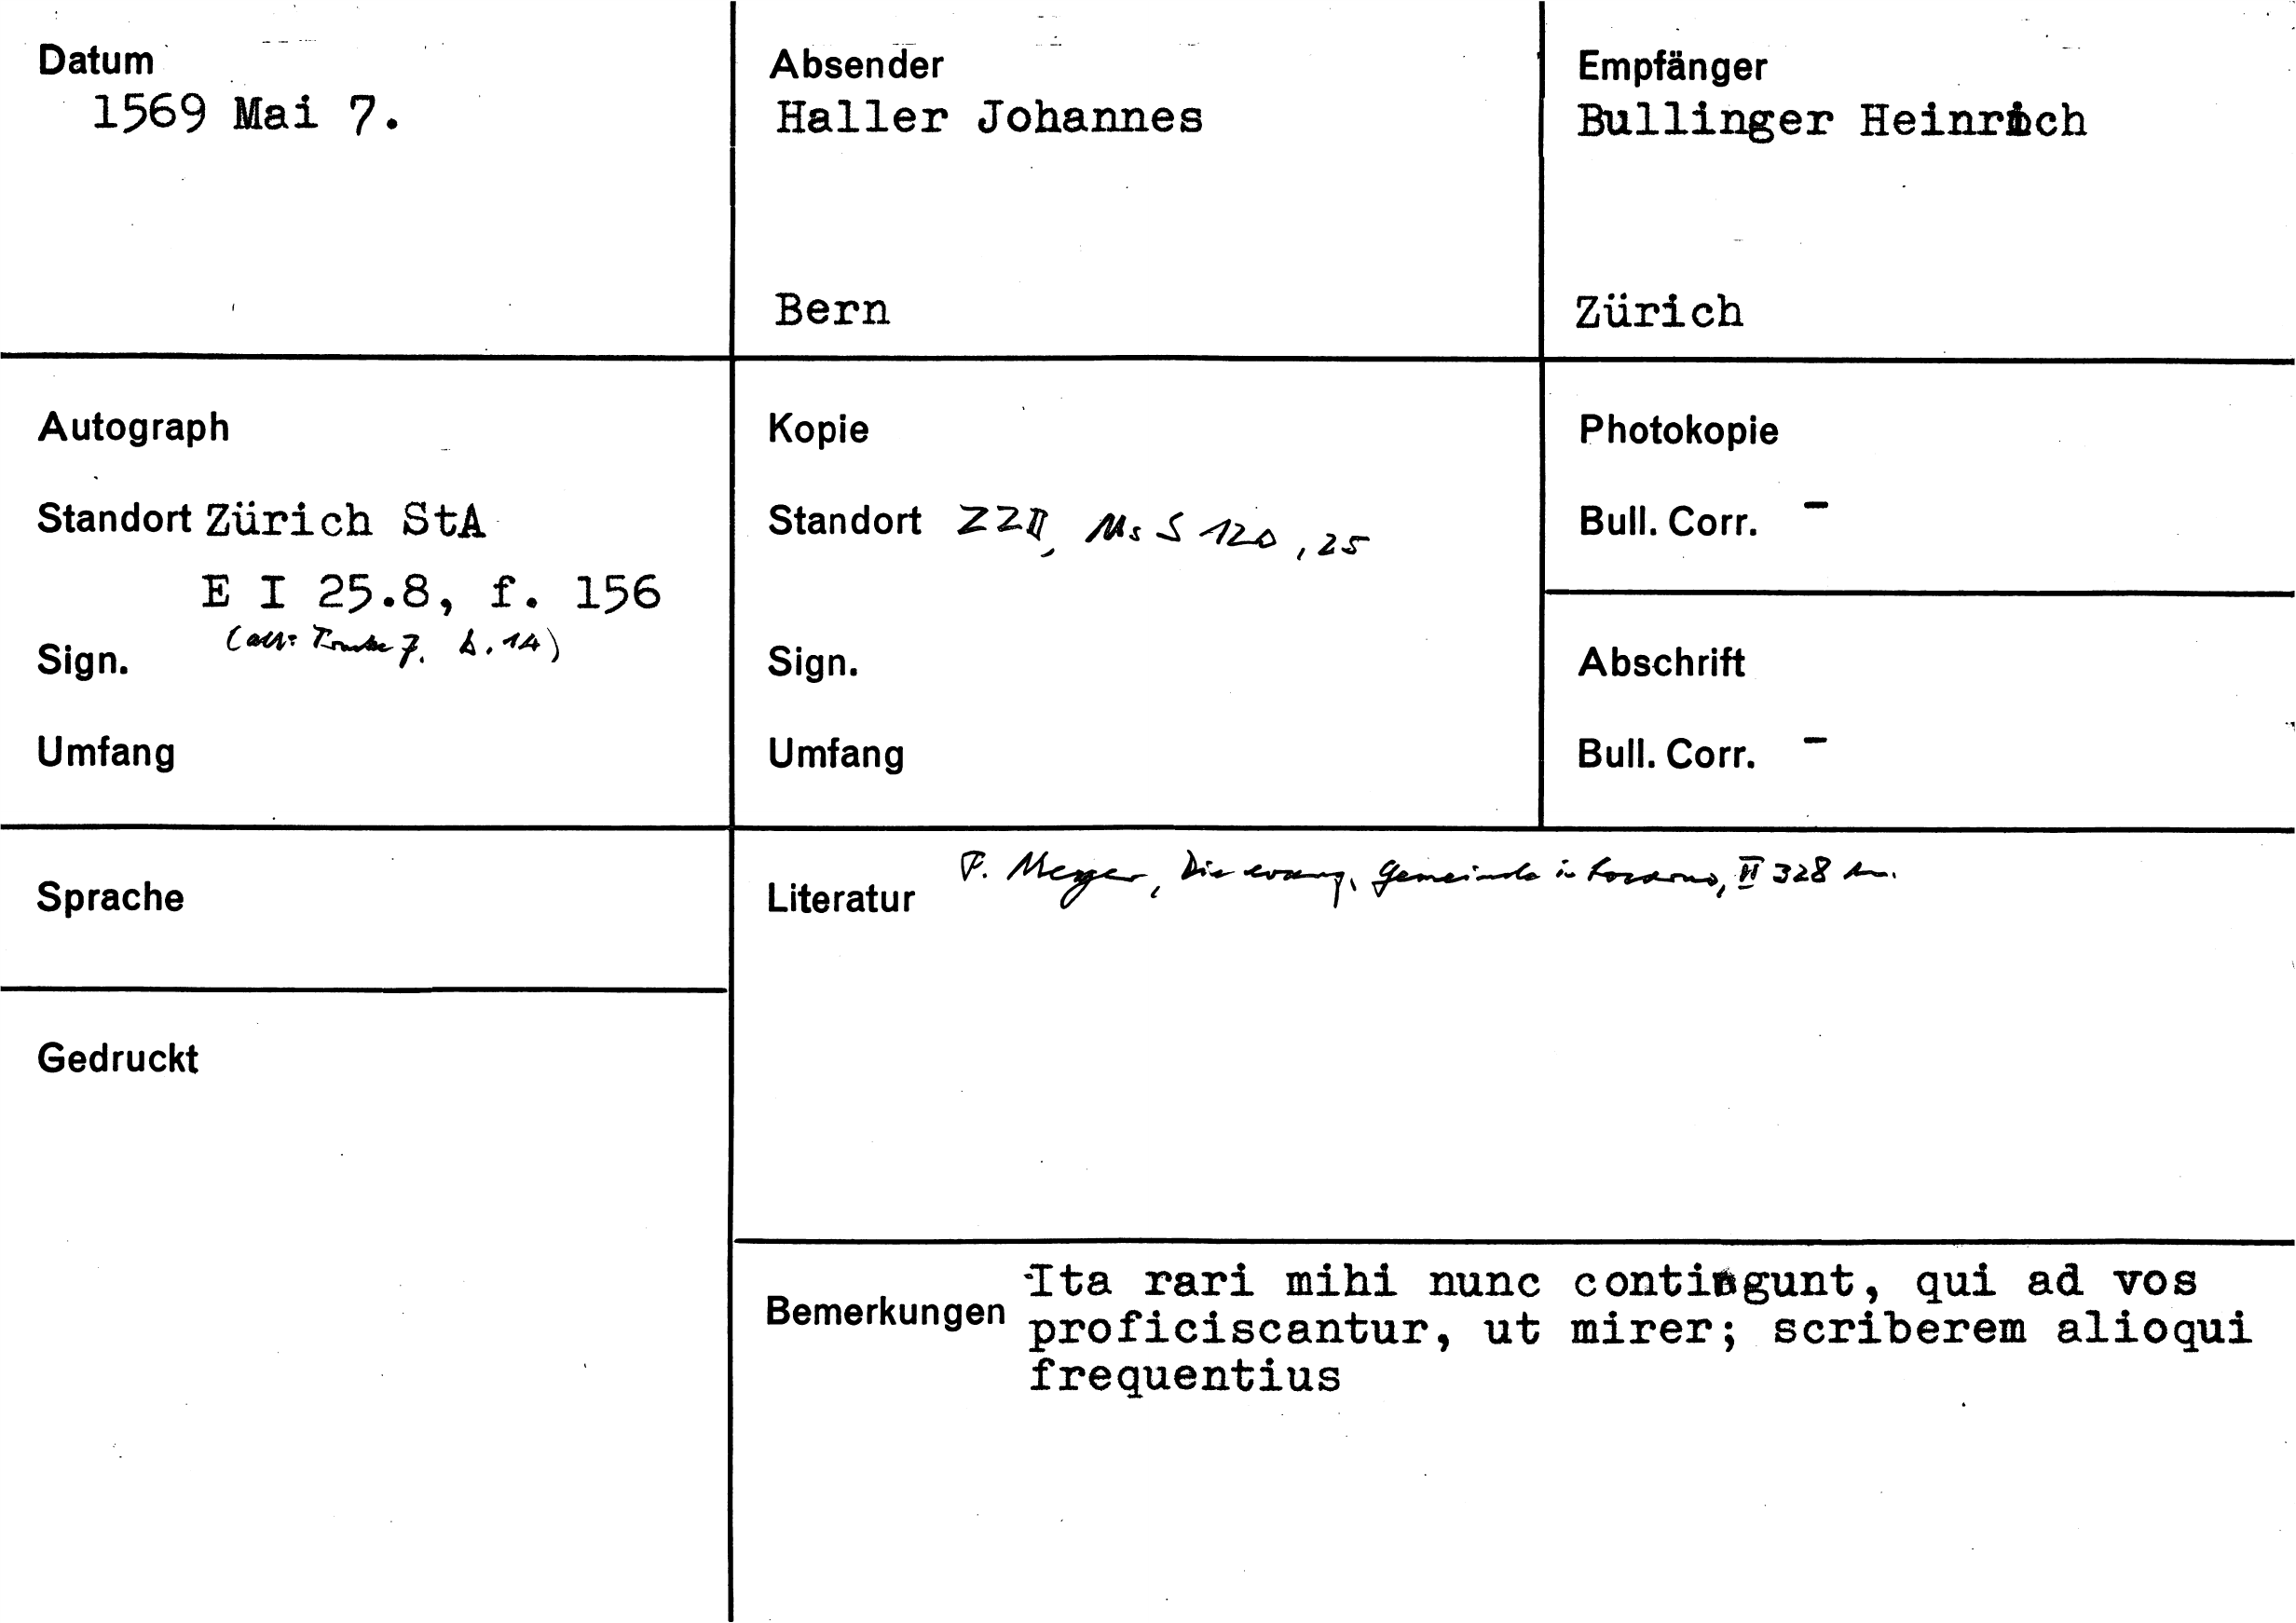 Datum
1569 Mai 7.
Absender
Haller Johannes
Bern
Empfänger
Bullinger Heinrich
Zürich
Autograph
Standort Zürich StA
E I 25.8, f. 156
Sign.
Umfang
Kopie
Standort ZZII, Ms S 120, 25
Sign.
Umfang
Photokopie
Bull. Corr. -
Abschrift
Bull. Corr. -
Sprache
Gedruckt
Literatur F. Meyer, Die evang. Gemeinde in Locarno, II 328
Bemerkungen Ita rari mihi nunc contingunt, qui ad vos
proficiscantur, ut mirer; scriberem alioqui
frequentius